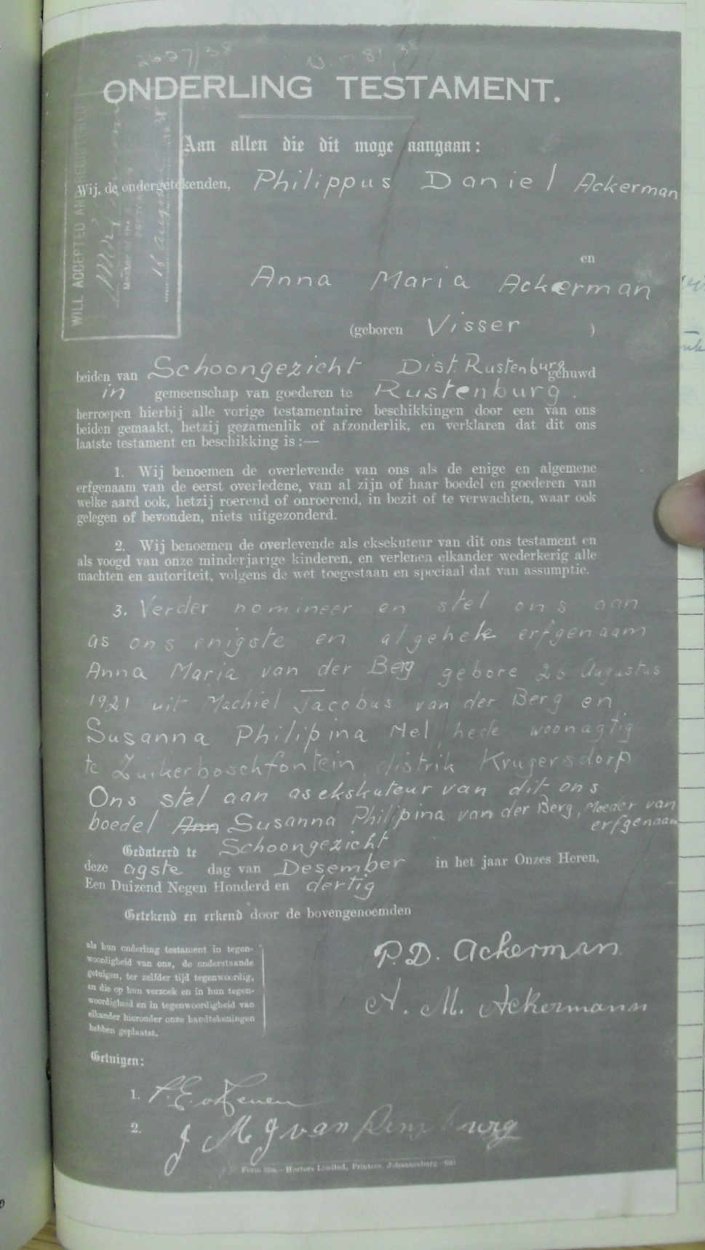 2627/38
ONDERLING TESTAMENT.
Aan allen die dit moge aangaan:
Wij, de ondergetekenden, Philippus Daniel Ackerman
en
Anna Maria Ackerman
(geboren Visser )
WILL ACCEPTED AND
beiden van Schoongezicht Dist. Rustenburg gehuwd
in gemeenschap van goederen te Rustenburg.
herroepen hierbij alle vorige testamentaire beschikkingen door een van ons
beiden gemaakt, hetzij gezamenlik of afzonderlik, en verklaren dat dit ons
laatste testament en beschikking is :—
1. Wij benoemen de overlevende van ons als de enige en algemene
erfgenaam van de eerst overledene, van al zijn of haar boedel en goederen van
welke aard ook, hetzij roerend of onroerend, in bezit of te verwachten, waar ook
gelegen of bevonden, niets uitgezonderd.
2. Wij benoemen de overlevende als eksekuteur van dit ons testament en
als voogd van onze minderjarige kinderen, en verlenen elkander wederkerig alle
machten en autoriteit, volgens de wet toegestaan en speciaal dat van assumptie.
3. Verder nomineer en stel ons aan
as ons enigste en algehele erfgenaam
Anna Maria van der Berg gebore 26 Augustus
1921 uit Machiel Jacobus van der Berg en
Susanna Philipina Nel, hede woonagtig
te Zuikerboschfontein distrik Krugersdorp
Ons stel aan as ekskuteur van dit ons
boedel Ann Susanna Philipina van der Berg, Moeder van
erfgenaam
Gedateerd te Schoongezicht
deze agste dag van Desember in het jaar Onzes Heren,
Een Duizend Negen Honderd en dertig
Getekend en erkend door de bovengenoemden
als hun onderling testament in tegen-
woordigheid van ons, de onderstaande
getuigen, ter zelfder tijd tegenwoordig,
en die op hun verzoek en in hun tegen-
woordigheid en in tegenwoordigheid van
elkander hieronder onze handtekeningen
hebben geplaatst.
P.D. Ackerman
A. M. Ackermann
Getuigen:
1.
2. J M J van Rensburg
Form Hortors Limited, Printers, Johannesburg